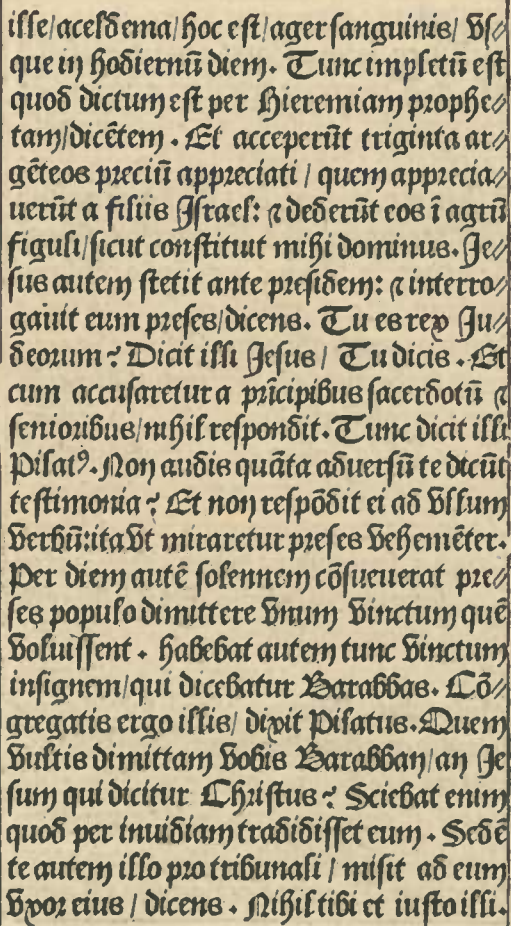 ille/aceldema/hoc est/ager sanguinis/ vs⸗
que in hodiernū diem. Tunc impletū est
quod dictum est per Hieremiam prophe⸗
tam/dicētem. Et acceperūt triginta ar⸗
gēteos preciū appreciati / quem apprecia⸗
uerūt a filiis Israel: ⁊ dederūt eos ī agrū
figuli/sicut constituit mihi dominus. Je⸗
sus autem stetit ante presidem: ⁊ interro⸗
gauit eum preses/dicens. Tu es rex Ju⸗
deorum? Dicit illi Jesus / Tu dicis. Et
cum accusaretur a prīcipibus sacerdotū ⁊
senioribus/nihil respondit. Tunc dicit illi
Pilatꝰ. Non audis quāta aduersū te dicūt
testimonia? Et non respōdit ei ad vllum
verbū:ita vt miraretur preses vehemēter.
Per diem autē solennem cōsueuerat pre⸗
ses populo dimittere vnum vinctum quē
voluissent. habebat autem tunc vinctum
insignem/qui dicebatur Barabbas. Cō⸗
gregatis ergo illis/ dixit Pilatus. Quem
vultis dimittam vobis Barabban/an Je
sum qui dicitur Christus? Sciebat enim
quod per inuidiam tradidisset eum. Sedē
te autem illo pro tribunali / misit ad eum
vxor eius / dicens. Nihil tibi et iusto illi.